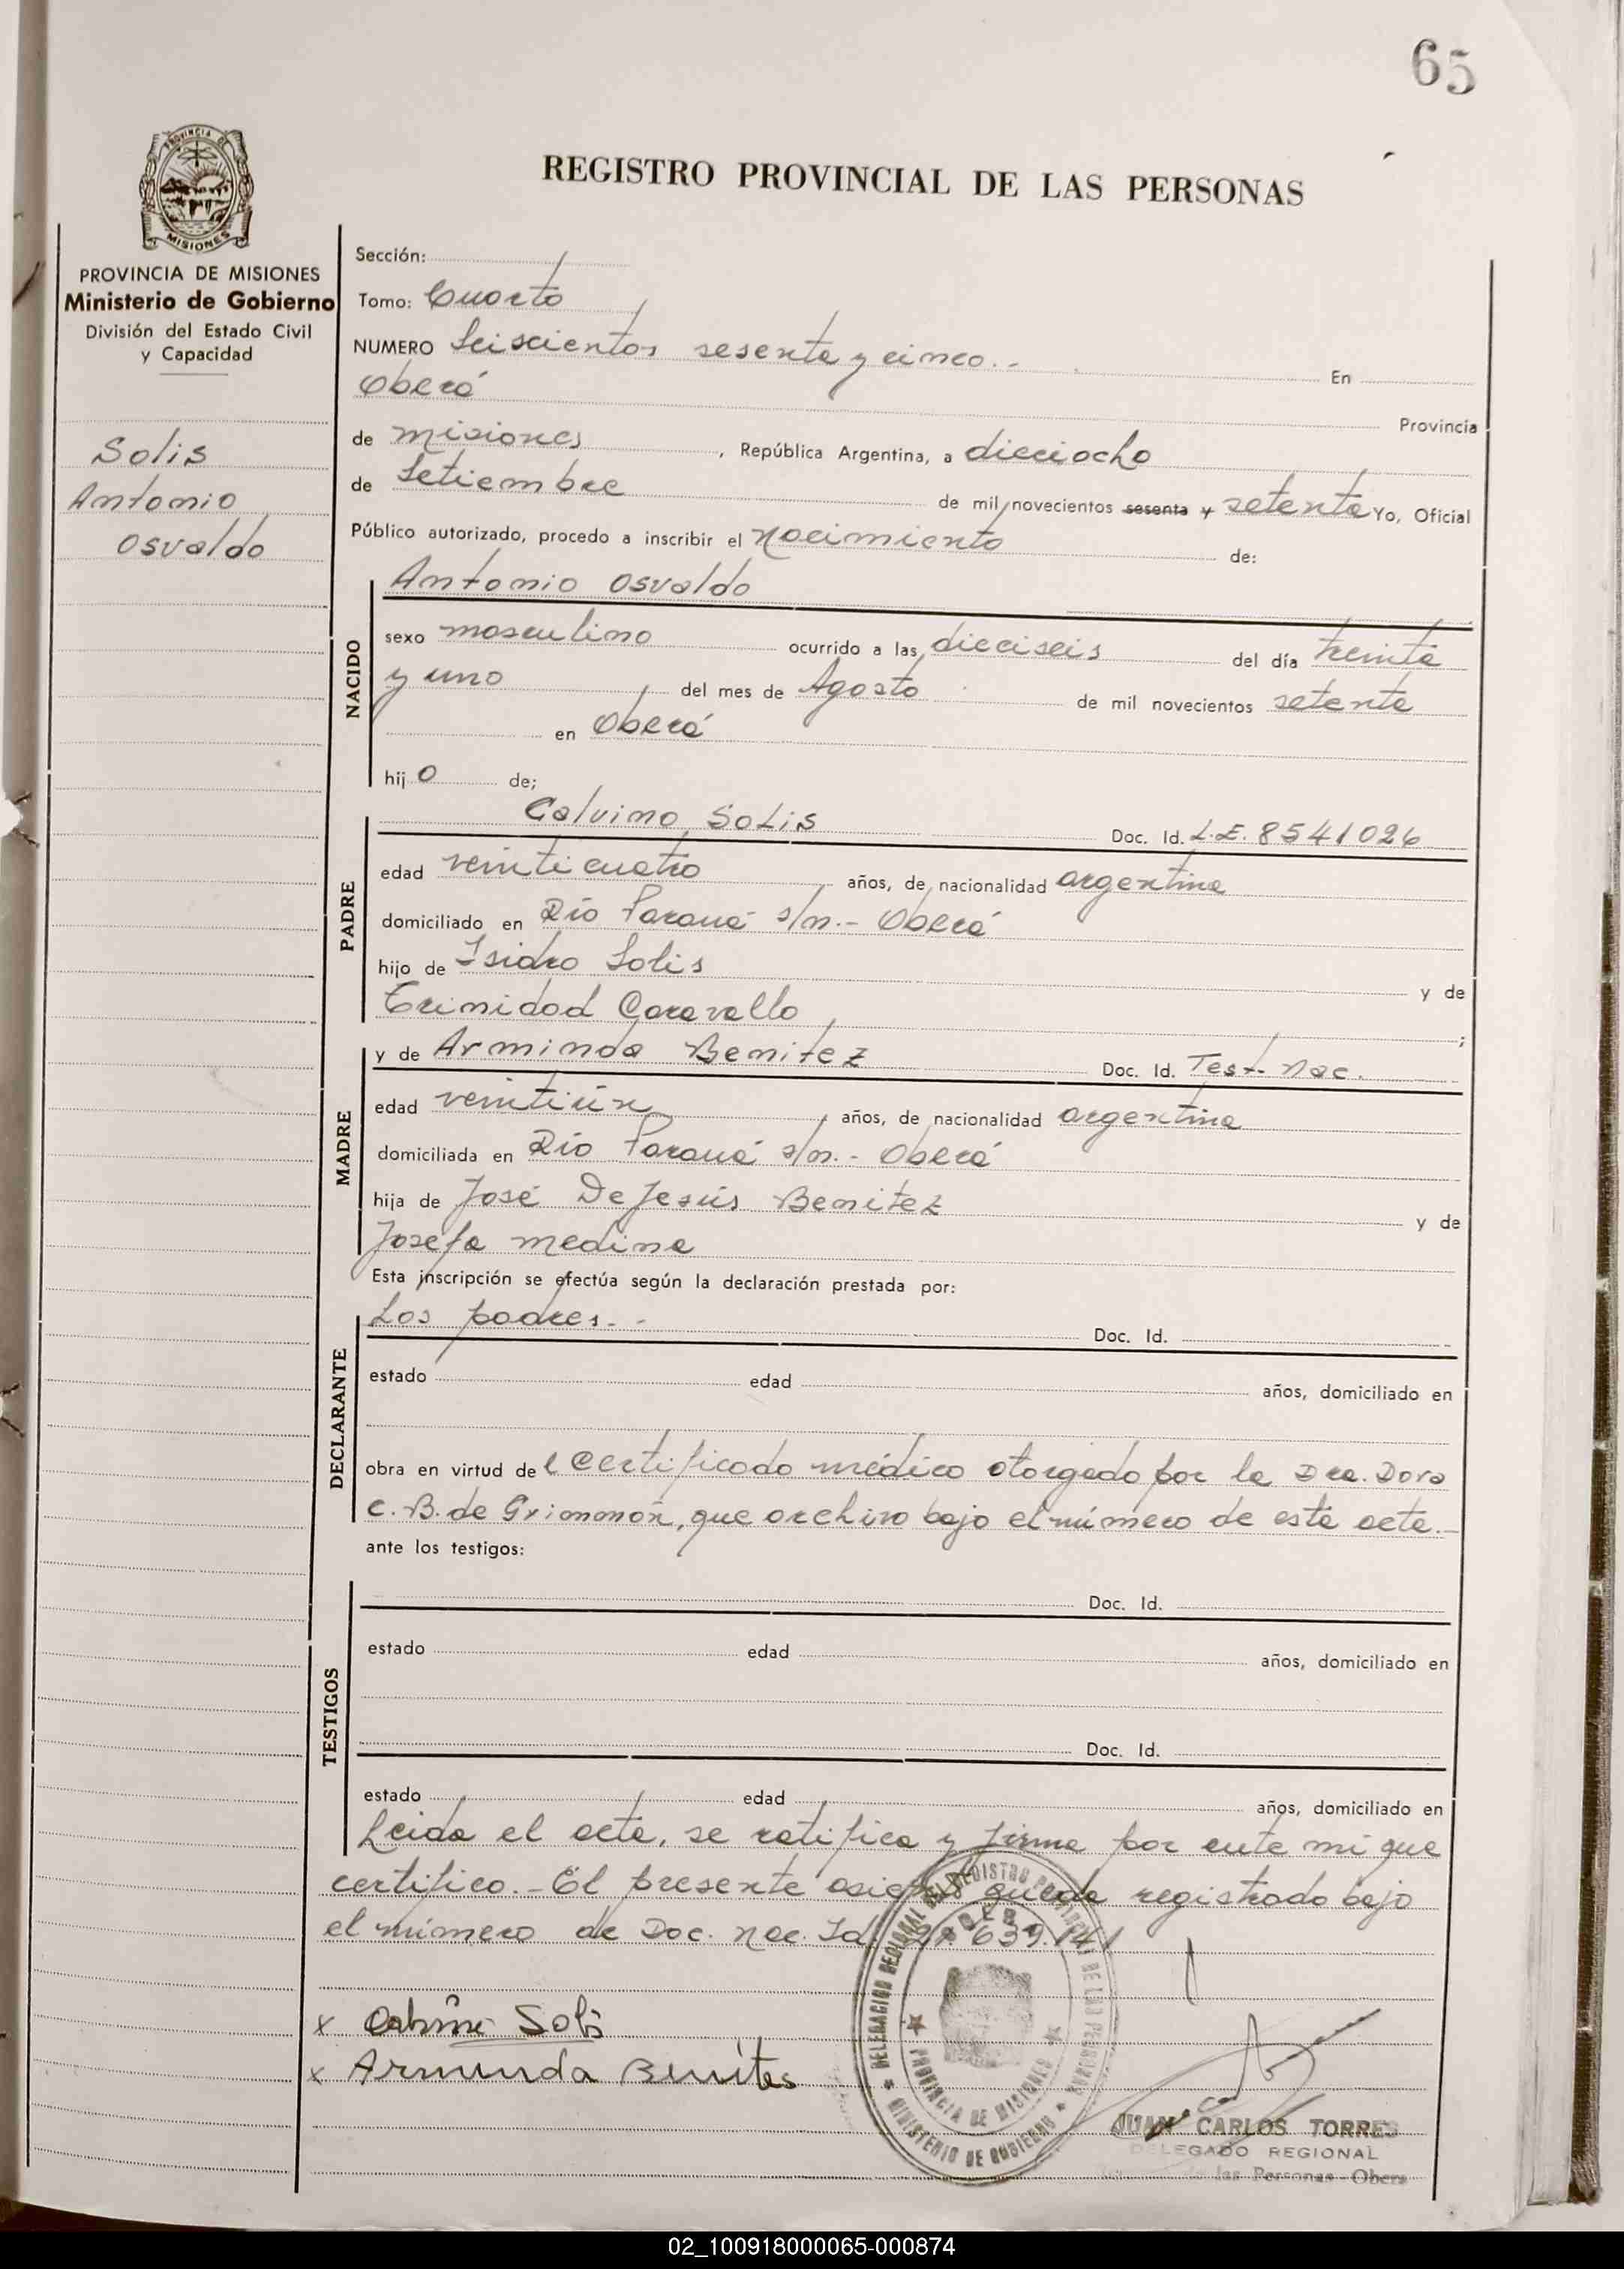 65
PROVINCIA DE
MISIONES
REGISTRO PROVINCIAL DE LAS PERSONAS
PROVINCIA DE MISIONES
Ministerio de Gobierno
División del Estado Civil
y Capacidad
Solis
Antonio
Osvaldo
Sección:
Tomo: Cuarto
NUMERO Seiscientos sesenta y cinco.- En
Oberá Provincia
de Misiones, República Argentina, a dieciocho
de Setiembre de mil novecientos sesenta y setenta Yo, Oficial
Público autorizado, procedo a inscribir el Nacimiento de:
NACIDO
Antonio Osvaldo
sexo masculino ocurrido a las dieciseis del día treinta
y uno del mes de Agosto de mil novecientos setenta
en Oberá
hijo de;
PADRE
Calvino Solis Doc. Id. L.E. 8541026
edad veinticuatro años, de nacionalidad argentina
domiciliado en Río Paraná s/n.- Oberá
hijo de Isidro Solis y de
Trinidad Caravallo ;
MADRE
y de Arminda Benitez Doc. Id. Test. Nac.
edad veintiún años, de nacionalidad argentina
domiciliada en Río Paraná s/n.- Oberá
hija de José De Jesús Benitez y de
Josefa Medina
Esta inscripción se efectúa según la declaración prestada por:
DECLARANTE
Los padres.- Doc. Id.
estado edad años, domiciliado en
obra en virtud del Certificado médico otorgado por la Dra. Dora
C. B. de que archivo bajo el número de esta acta.-
ante los testigos:
TESTIGOS
Doc. Id.
estado edad años, domiciliado en
Doc. Id.
estado edad años, domiciliado en
Leida el acta, se ratifica y firma por ante mi que
certifico.- El presente asiento queda registrado bajo
el número de Doc. Nac. Id.
x Solis
x Arminda Benites
DELEGACION REGIONAL DEL REGISTRO PROVINCIAL DE LAS PERSONAS
MINISTERIO DE GOBIERNO
PROVINCIA DE MISIONES
JUAN CARLOS TORRES
DELEGADO REGIONAL
de las Personas - Oberá
02_100918000065-000874